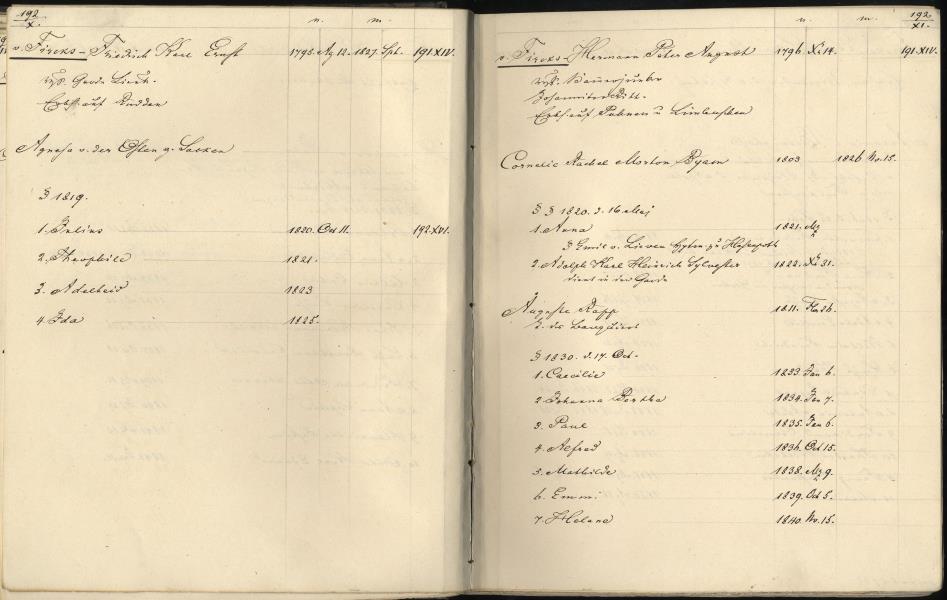 192
X.
n. m.
v. Fircks - Friedrich Karl Ernst 1795. Ag 12. 1827. Spt. 191.XIV.
russ. Garde Lieut.
Erbh. auf Rudden
Agnesa v. der Osten g. Sacken
§ 1819.
1. Julius 1820. Oct 11. 192.XVI.
2. Theophile 1821.
3. Adelheid 1823
4. Ida 1825.
192
XI.
n. m.
v. Fircks - Hermann Peter August 1796. 14. 191.XIV.
russ. Kammerjunker
Johanniter Ritt.
Erbh. auf u
Cornelie Rachel Morton Byam 1803 1826 Nv. 15.
§ § 1820. d. 16 Maj
1. Anna 1821. Mz
§ Emil v. Lieven Hptm. zu Hasenpoth
2. Adolph Karl Heinrich Sylvester 1822. 31.
dient in der Garde
Auguste Rapp 1811. Fb 26.
T. des
§ 1830. d. 17. Oct.
1. Caecilie 1833 Jan 6.
2. Johanna Bertha 1834. Jan 7.
3. Paul 1835. Jan 6.
4. Alfred 1836. Oct 15.
5. Mathilde 1838. Mz 9.
6. Emmi 1839. Oct 5.
7. Helene 1840. Nv. 15.